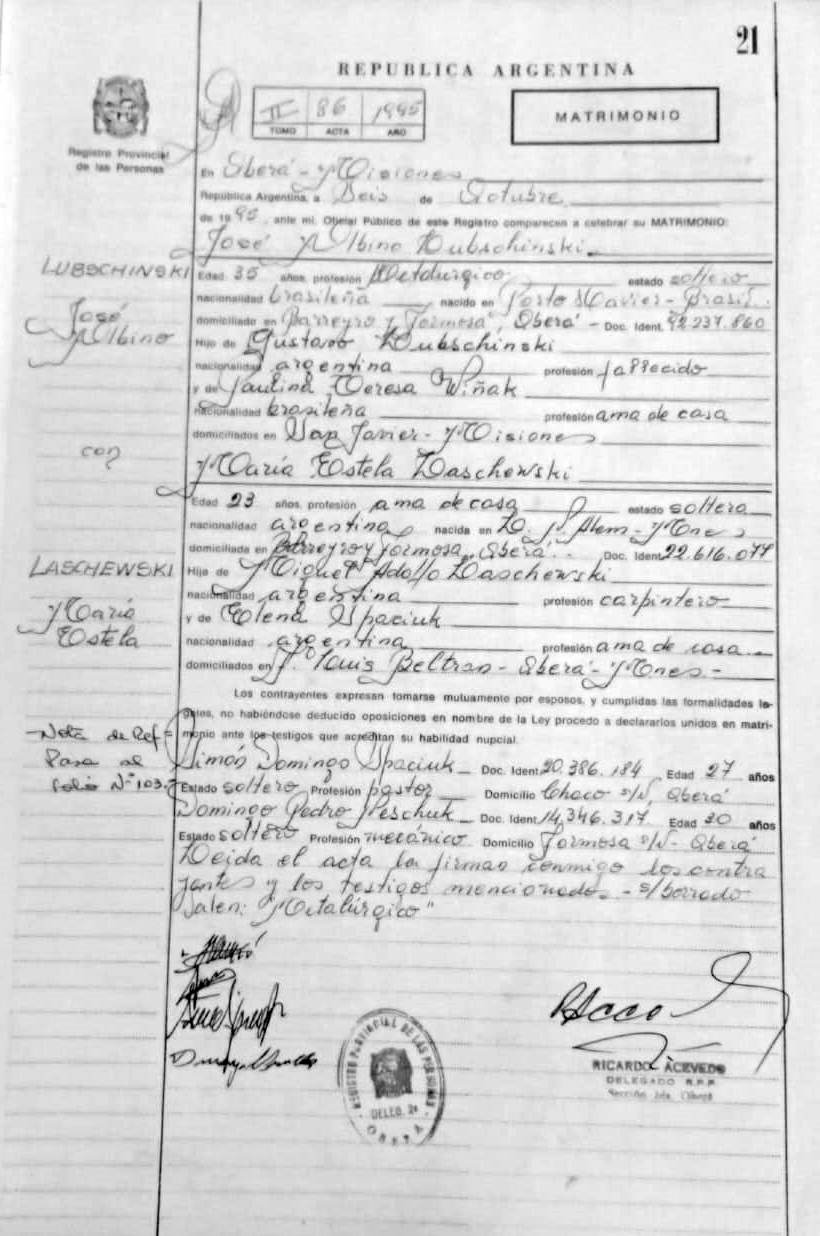 21
REPUBLICA ARGENTINA
II 86 1995
TOMO ACTA AÑO
MATRIMONIO
Registro Provincial
de las Personas
En Oberá - Misiones
República Argentina, a Seis de Octubre
de 1995, ante mí, Oficial Público de este Registro comparecen a celebrar su MATRIMONIO:
José Albino Lubschinski
LUBSCHINSKI
José
Albino
Edad 35 años, profesión Metalúrgico estado soltero
nacionalidad brasileña nacido en Porto Xavier - Brasil
domiciliado en Barreyro y Formosa, Oberá - Doc. Ident. 92.237.860
Hijo de Gustavo Lubschinski
nacionalidad argentina profesión fallecido
y de Paulina Teresa Wiñak
nacionalidad brasileña profesión ama de casa
domiciliados en San Javier - Misiones
con
María Estela Laschewski
Edad 23 años, profesión ama de casa estado soltera
nacionalidad argentina nacida en L. N. Alem - Mnes
domiciliada en Barreyro y Formosa, Oberá. Doc. Ident. 22.616.077
LASCHEWSKI
María
Estela
Hija de Miguel Adolfo Laschewski
nacionalidad argentina profesión carpintero
y de Elena Spaciuk
nacionalidad argentina profesión ama de casa
domiciliados en F. Louis Beltran - Oberá - Mnes -
Los contrayentes expresan tomarse mutuamente por esposos, y cumplidas las formalidades le-
gales, no habiéndose deducido oposiciones en nombre de la Ley procedo a declararlos unidos en matri-
monio ante los testigos que acreditan su habilidad nupcial.
- Nota de Ref=
Pasa al
folio N° 103.-
Simón Domingo Spaciuk - Doc. Ident. 20.386.184 Edad 27 años
Estado soltero Profesión pastor Domicilio Chaco s/N, Oberá
Domingo Pedro Peschuk - Doc. Ident. 14.346.317 Edad 30 años
Estado soltero Profesión mecánico Domicilio Formosa s/N - Oberá
Leida el acta la firman conmigo los contra
yentes y los testigos mencionados - s/borrado
Valen: "Metalúrgico"
REGISTRO PROVINCIAL DE LAS PERSONAS
DELEG. 2a
OBERÁ
RICARDO ACEVEDO
DELEGADO R.P.P.
Sección 2da. Oberá